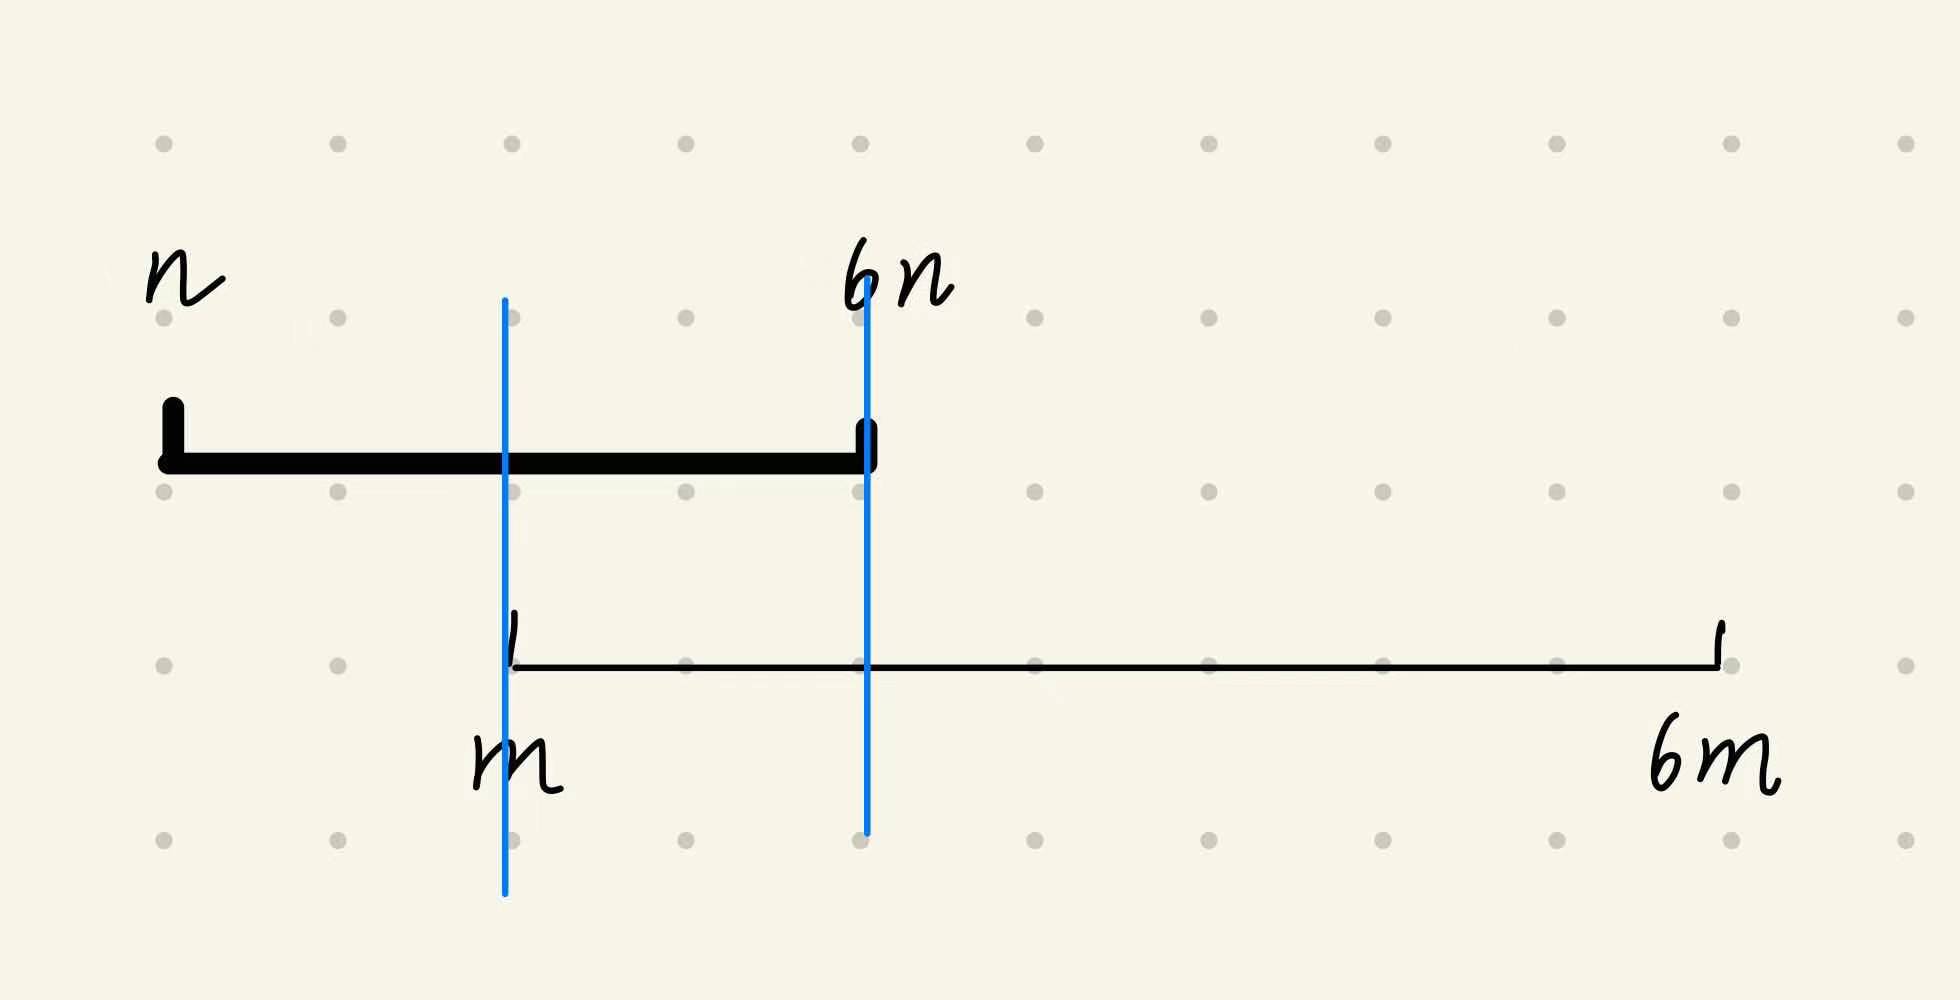 n 6n
m 6m